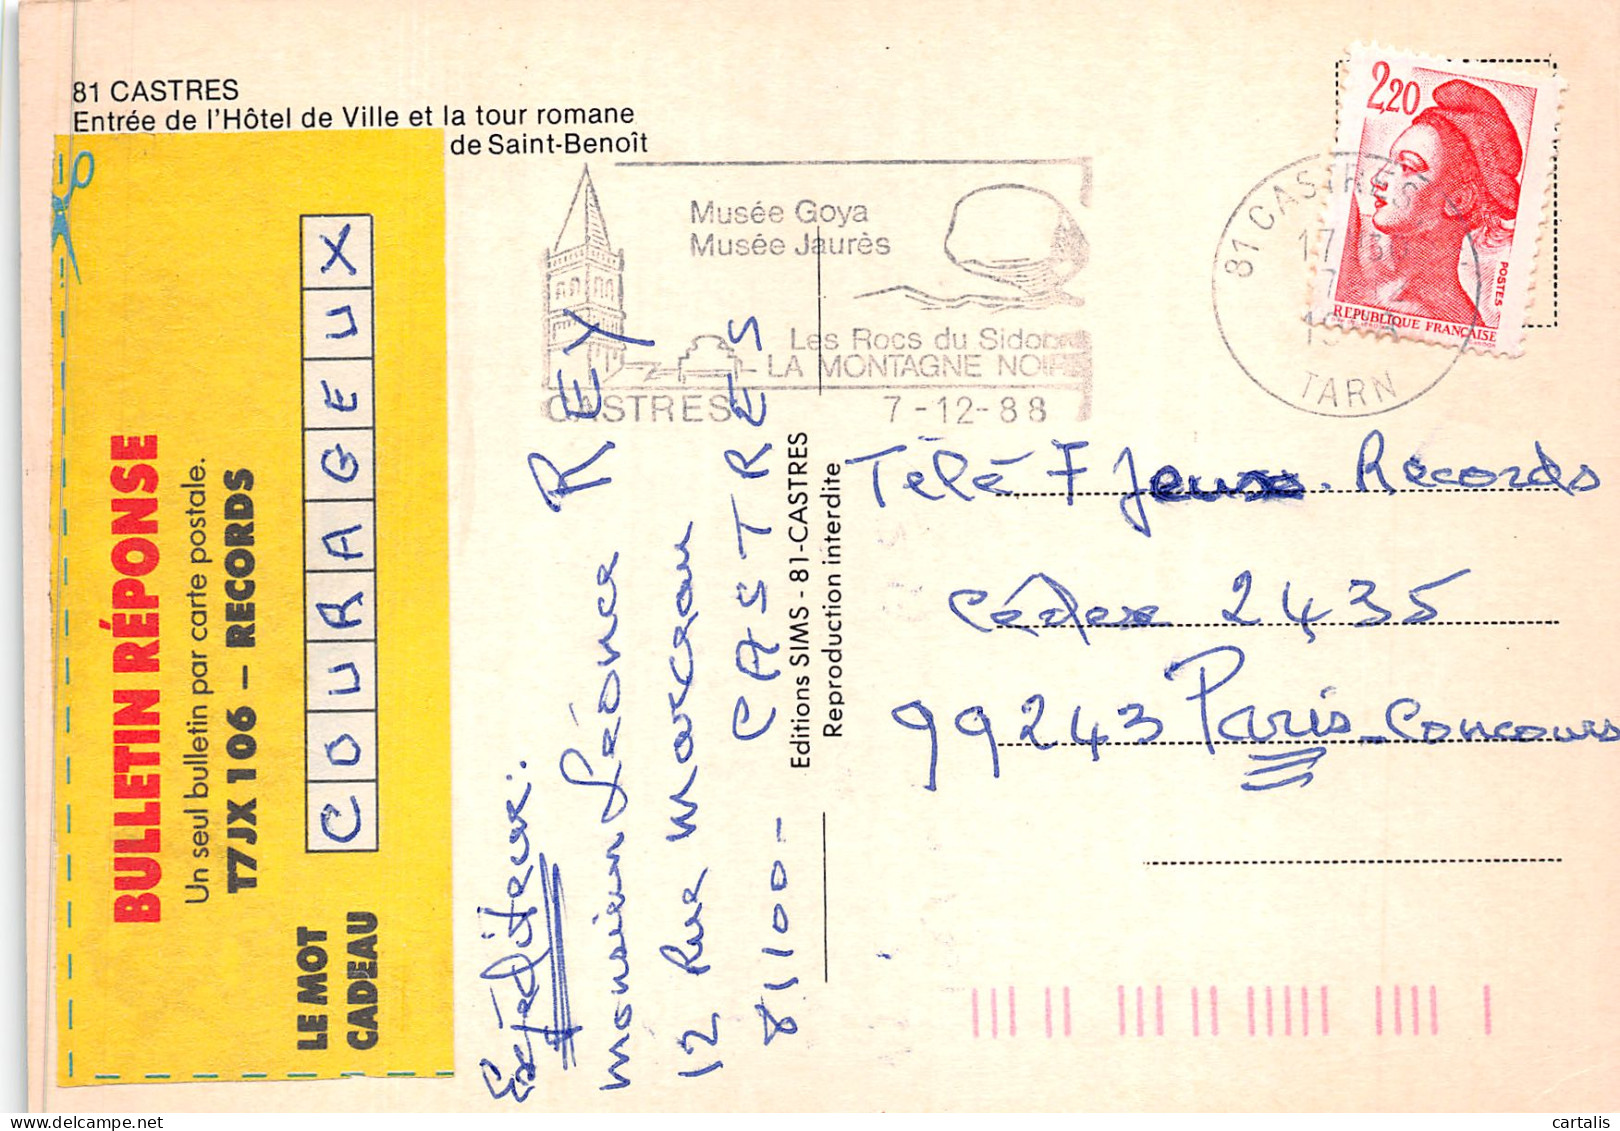 81 CASTRES
Entrée de l'Hôtel de Ville et la tour romane
de Saint-Benoît
BULLETIN RÉPONSE
Un seul bulletin par carte postale.
T7JX 106 – RECORDS
LE MOT
CADEAU
COURAGEUX
Musée Goya
Musée Jaurès
Les Rocs du Sidobre
LA MONTAGNE NOIRE
CASTRES 7-12-88
81 CASTRES
TARN
2,20
POSTES
REPUBLIQUE FRANÇAISE
Expéditeur:
Monsieur Léonce REY
12 Rue Marceau
81100- CASTRES
Editions SIMS - 81-CASTRES
Reproduction interdite
Télé 7 Jeux. Records
Cédex 2435
99243 Paris-Concours
cartalis | Delcampe.net